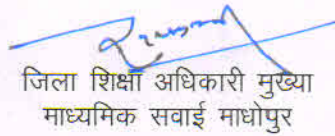 जिला शिक्षा अधिकारी मुख्या
माध्यमिक सवाई माधोपुर